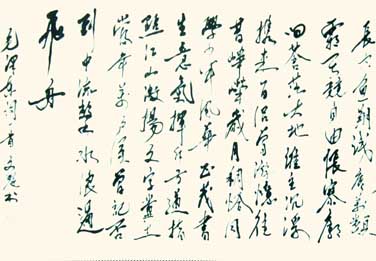 長空魚翔淺底萬類
霜天競自由悵寥廓
问蒼茫大地誰主沉浮
攜來百侣曾游憶往
昔崢嶸歲月稠恰同
學少年風華正茂書
生意氣揮斥方遒指
點江山激揚文字糞土
當年萬户侯曾記否
到中流擊水浪遏
飛舟
毛澤東詞